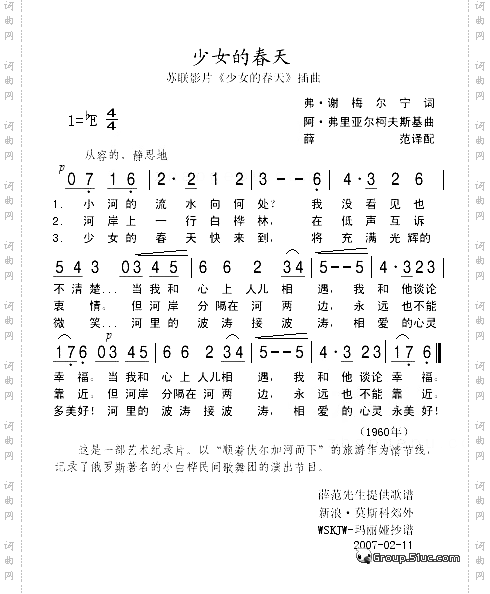 少女的春天
苏联影片《少女的春天》插曲
弗·谢梅尔宁词
1=♭E 4/4
阿·弗里亚尔柯夫斯基曲
薛 范译配
从容的、静思地
p
0 7 1 6 | 2 · 2 1 2 | 3 - - 6 | 4 · 3 2 2 |
1. 小河的流水向何处？我没看见也
2. 河岸上一行白桦林，在低声互诉
3. 少女的春天快来到，将充满光辉的
5 4 3 03 45 | 6 6 2 34 | 5 - - 5 | 4 · 3 23 |
不清楚…当我和心上人儿相遇，我和他谈论
衷情。但河岸分隔在河两边，永远也不能
微笑…河里的波涛接波涛，相爱的心灵
p
176 03 45 | 6 6 2 34 | 5 - - 5 | 4 · 3 23 | 176 · ‖
幸福。当我和心上人儿相遇，我和他谈论幸福。
靠近。但河岸分隔在河两边，永远也不能靠近。
多美好！河里的波涛接波涛，相爱的心灵永美好！
(1960年)
这是一部艺术纪录片。以“顺着伏尔加河而下”的旅游作为情节线，
记录了俄罗斯著名的小白桦民间歌舞团的演出节目。
薛范先生提供歌谱
新浪·莫斯科郊外
WSKJW-玛丽娅抄谱
2007-02-11
Group.51uc.com
词曲网